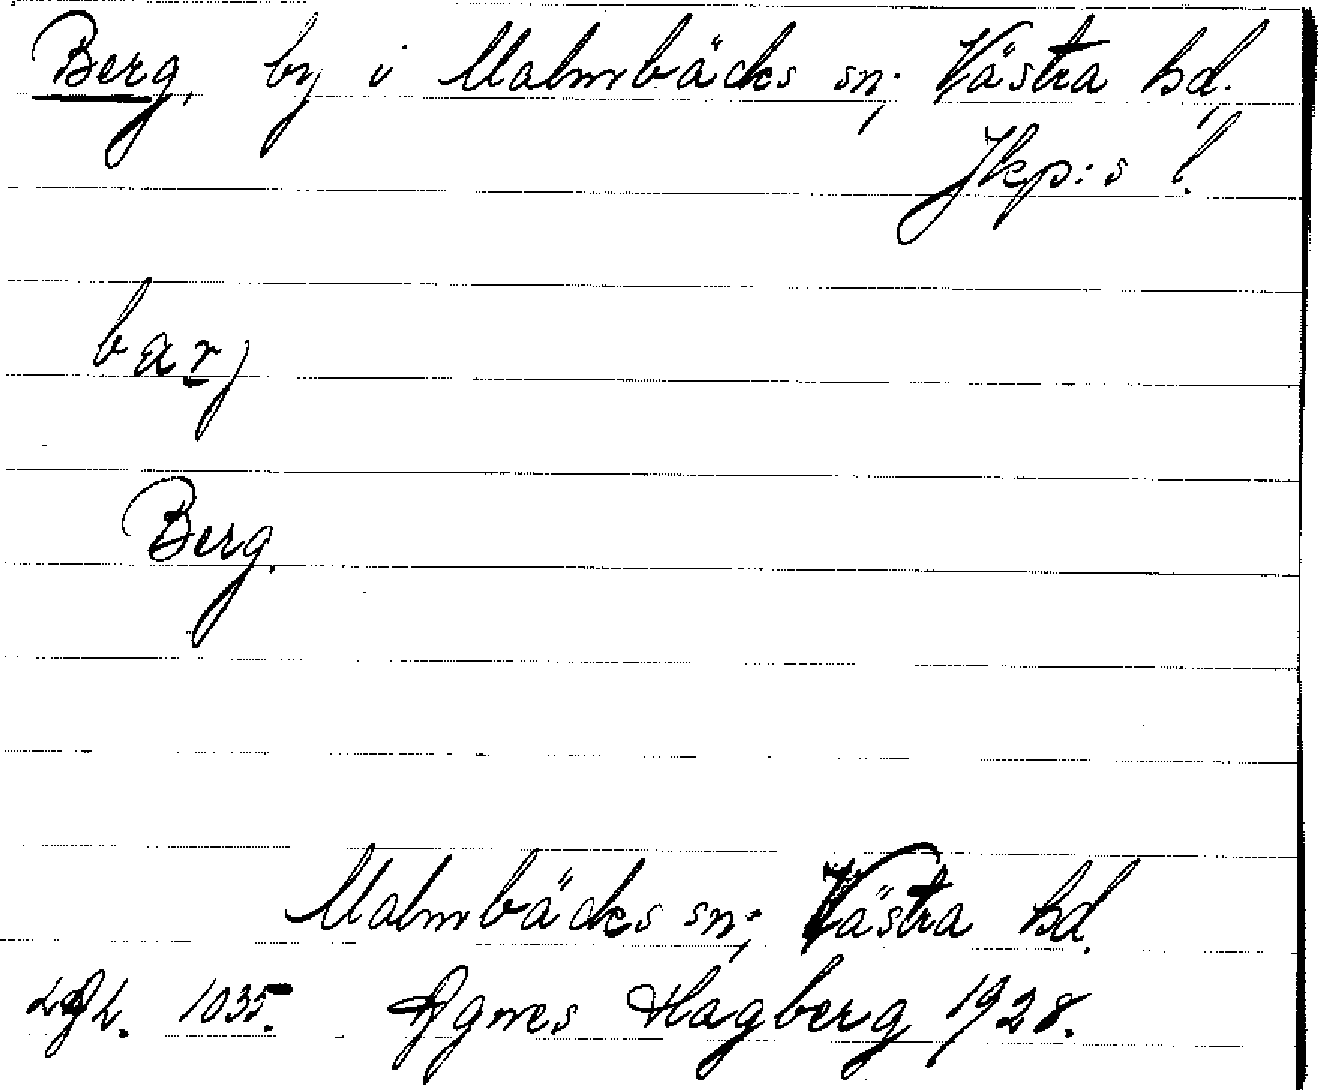 Berg, by i Malmbäcks sn; Västra hd,
Jkp:s l.
barj
Berg.
Malmbäcks sn; Västra hd.
1035. Agnes Hagberg 1928.